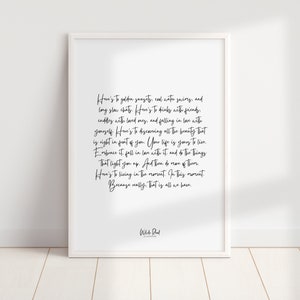 Here's to golden sunsets, cool water swims, and
long slow chats. Here's to drinks with friends,
cuddles with loved ones, and falling in love with
yourself. Here's to discovering all the beauty that
is right in front of you. Your life is yours to live.
Embrace it, fall in love with it, and do the things
that light you up. And then do more of them.
Here's to living in the moment. In this moment.
Because really, that is all we have.